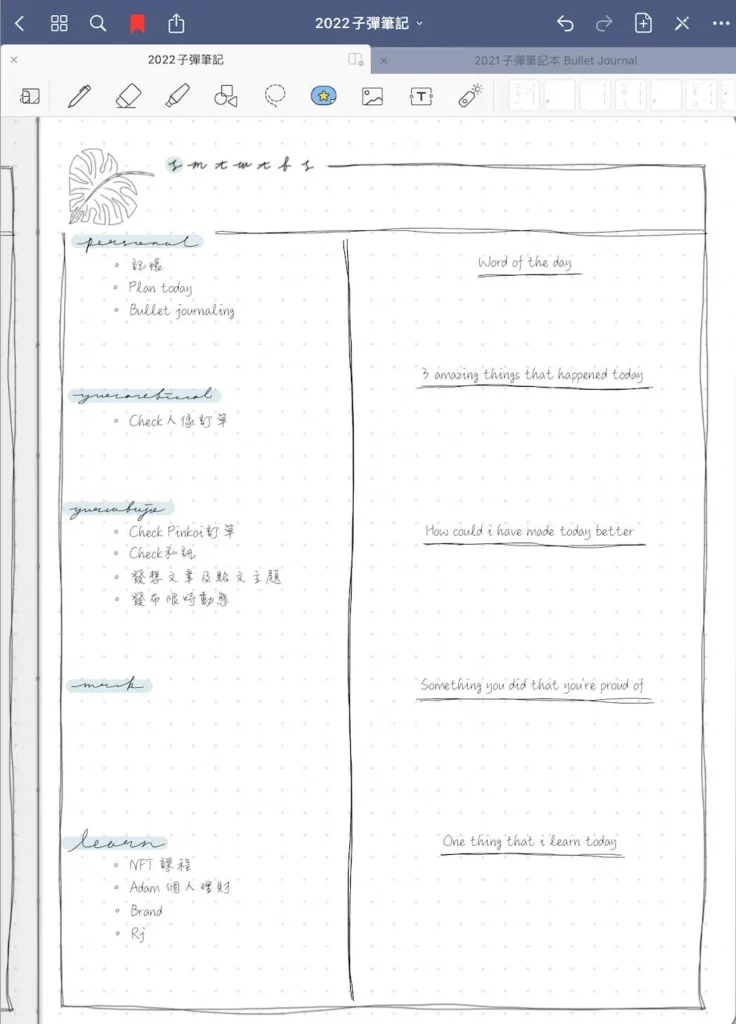 2022子彈筆記
2022子彈筆記
2021子彈筆記本 Bullet Journal
T
s m t w t f s
personal
記帳
Plan today
Bullet journaling
Check人像訂單
Check Pinkoi訂單
Check私訊
發想文章及貼文主題
發布限時動態
learn
NFT 課程
Adam 個人理財
Brand
Rj
Word of the day
3 amazing things that happened today
How could i have made today better
Something you did that you're proud of
One thing that i learn today